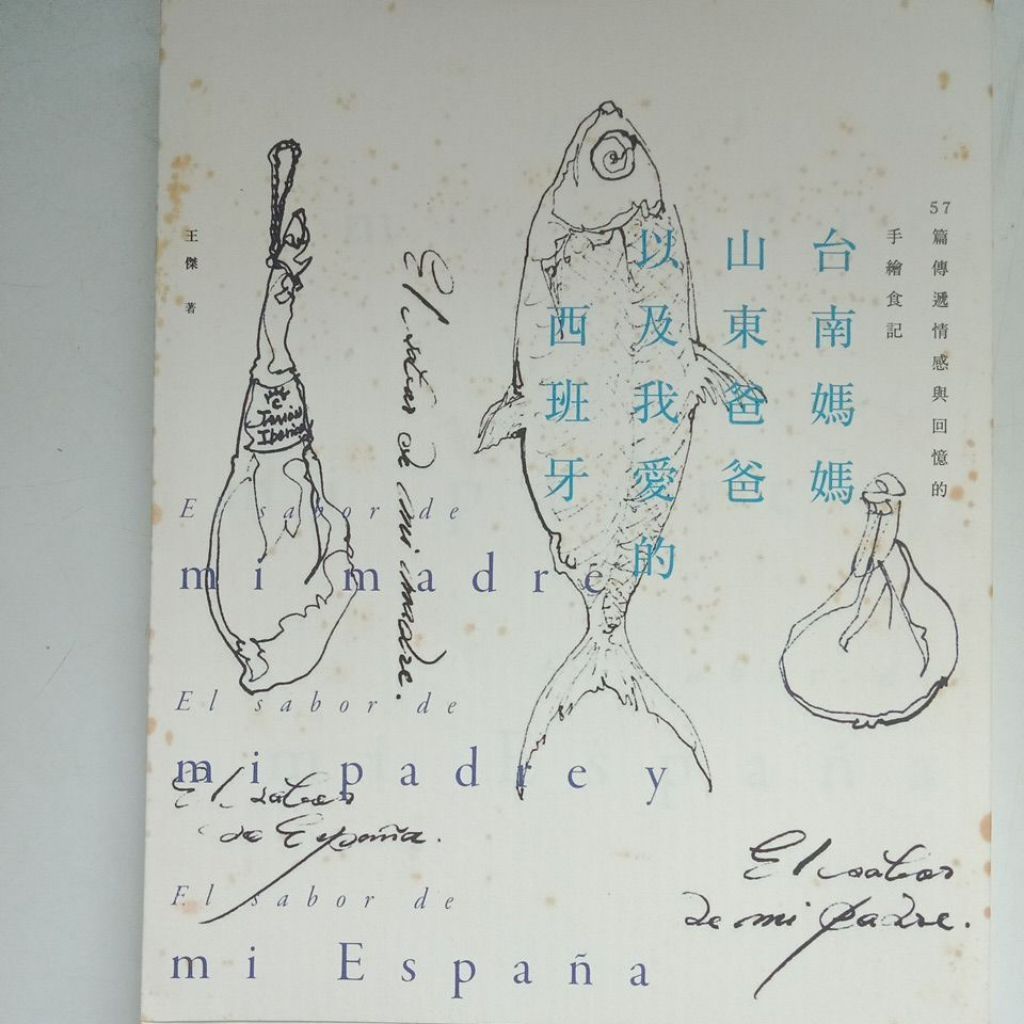 57篇傳遞情感與回憶的
手繪食記
台南媽媽
山東爸爸
以及我愛的
西班牙
王傑 著
El sabor de mi madre.
El sabor de
mi madre
El sabor de
mi padre y
El sabor
de España.
El sabor de
mi España
El sabor
de mi padre.